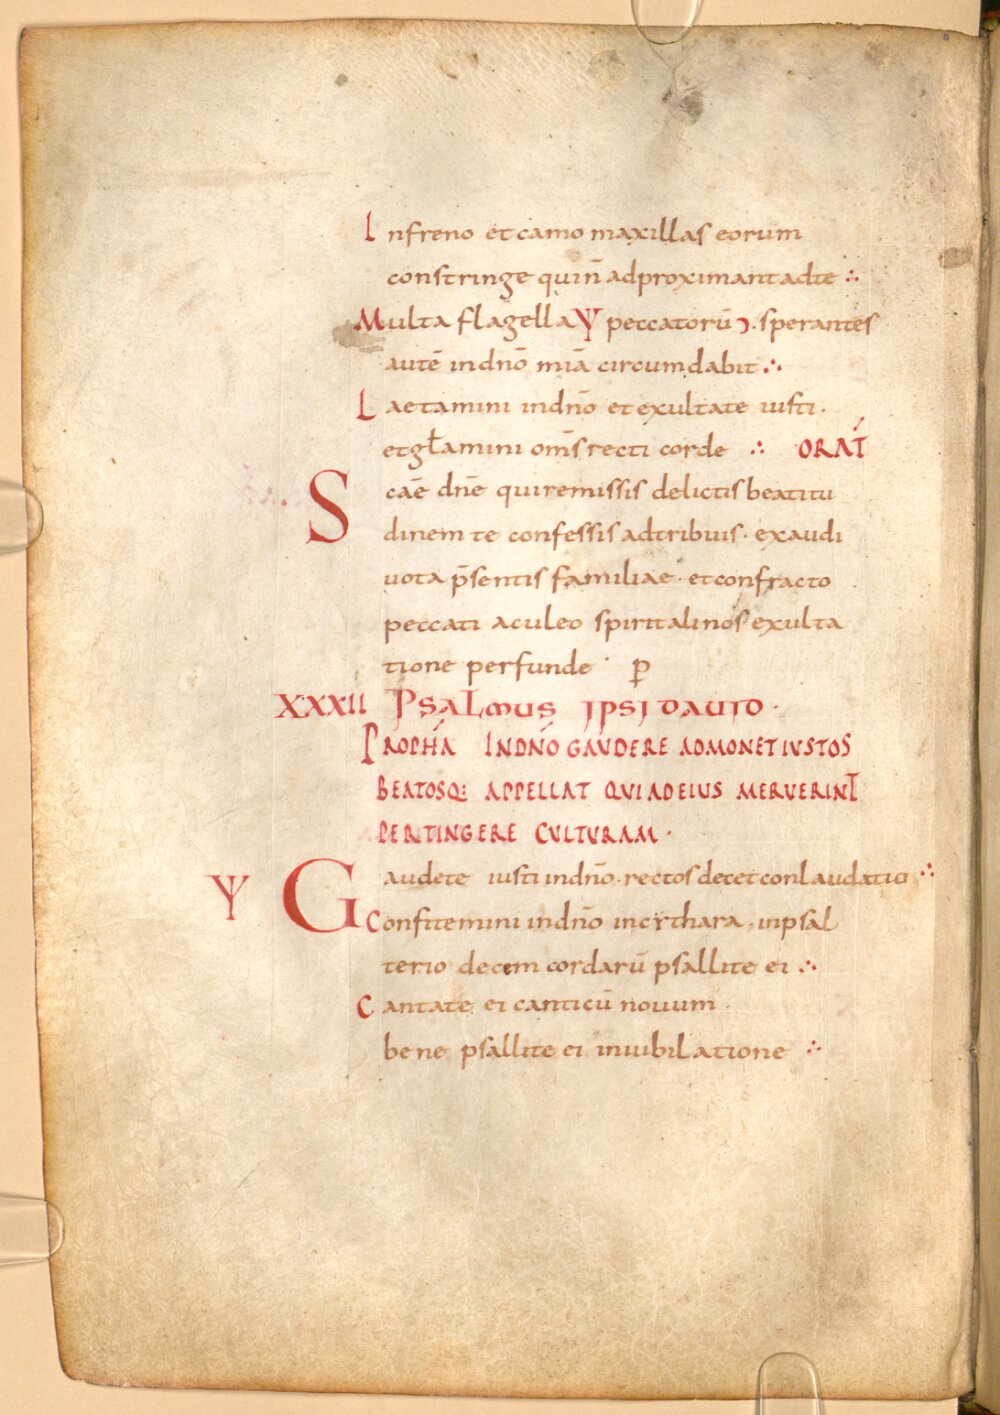 I nfreno et camo maxillas eorum
constringe qui n̄ adproximant ad te ∴
Multa flagella Ψ peccatorū ͻ. sperantes
autē in dn̄o miā circumdabit ∴
L aetamini in dn̄o et exultate iusti ·
et gl̄amini om̄s recti corde ∴ ORAT̄
S cāe dn̄e qui remissis delictis beatitu
dinem te confessis adtribuis · exaudi
uota p̄sentis familiae · et confracto
peccati aculeo spiritali nos exulta
tione perfunde · p̄
XXXII PSALMUS IPSI DAUID ·
PROPHA IN DNO GAUDERE ADMONET IUSTOS
BEATOSQ: APPELLAT QUI AD EIUS MERUERINT
PERTINGERE CULTURAM ·
Ψ G audete iusti in dn̄o · rectos decet conlaudatio ∴
Confitemini in dn̄o in cythara · in psal
terio decem cordarū psallite ei ∴
C antate ei canticū nouum ·
bene psallite ei in iubilatione ∴